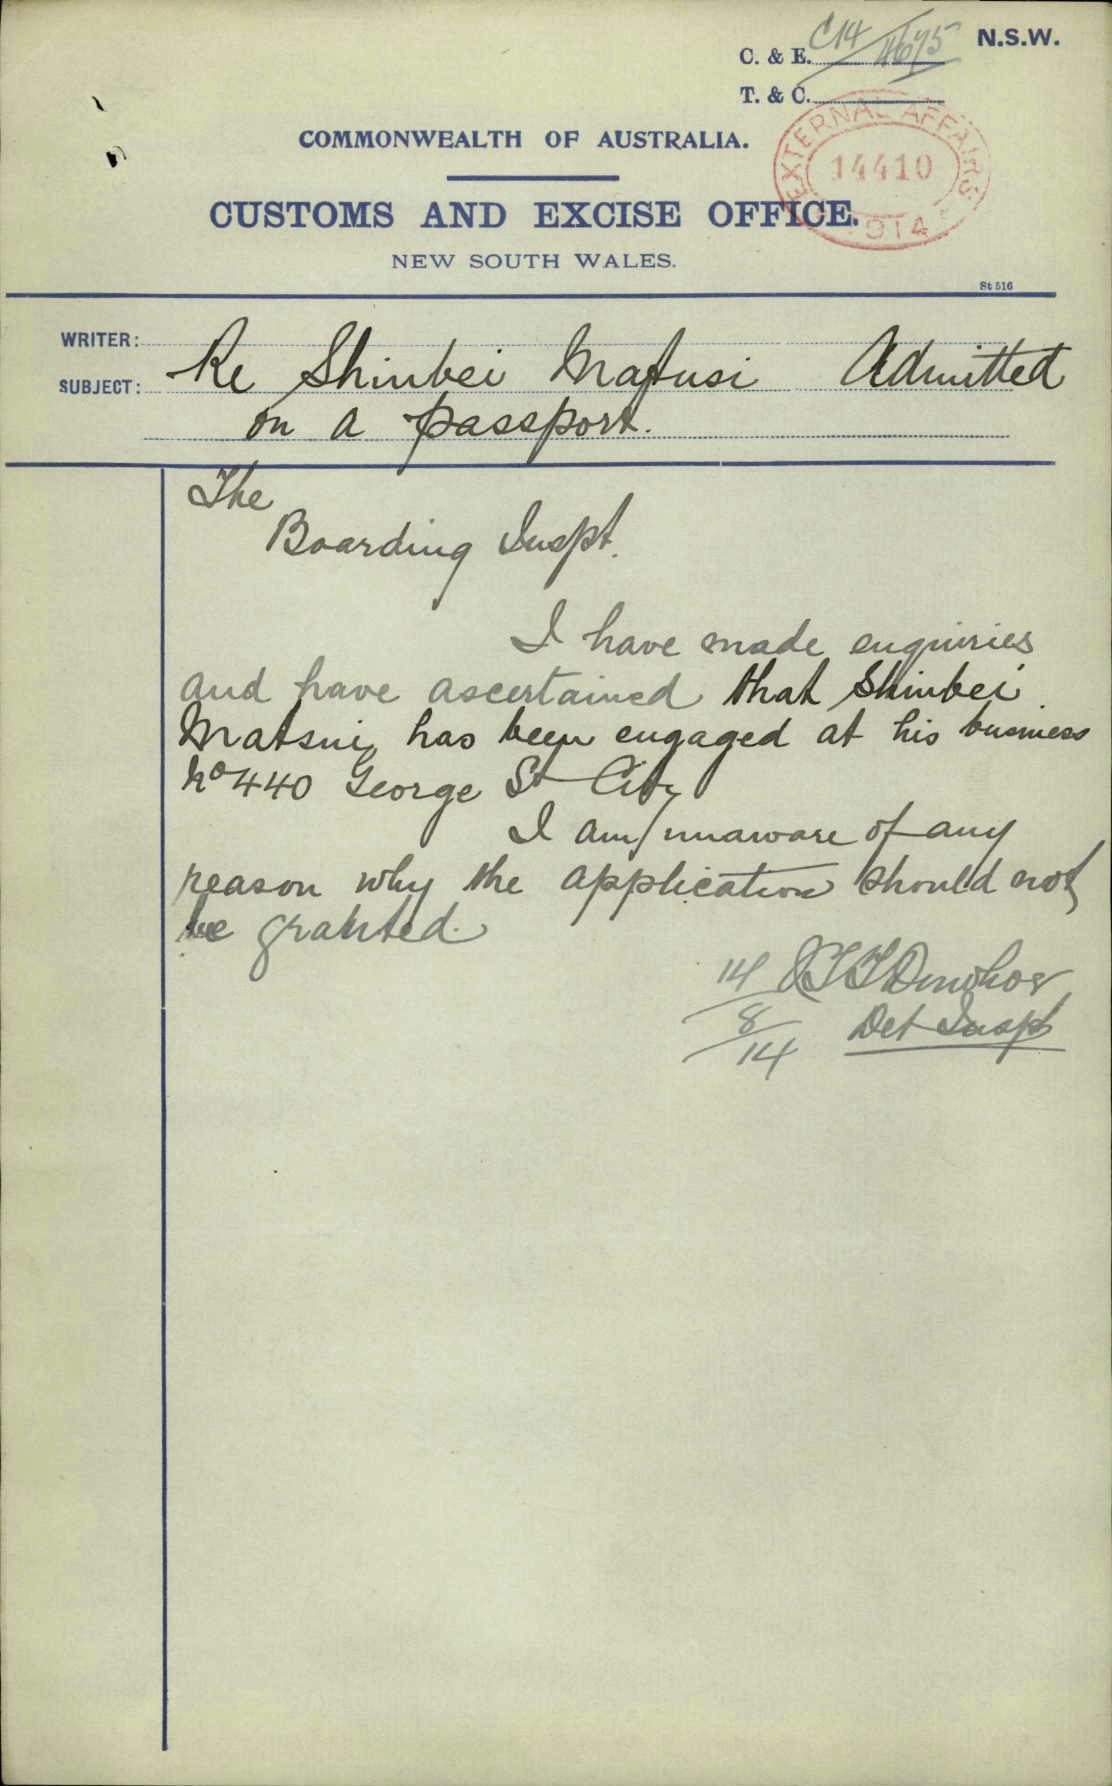 C. & E. C14/4675 N.S.W.
T. & C.
EXTERNAL AFFAIRS
14410
1914
COMMONWEALTH OF AUSTRALIA.
CUSTOMS AND EXCISE OFFICE.
NEW SOUTH WALES.
St 516
WRITER:
SUBJECT: Re Shinbei Matusi Admitted
on a passport.
The
Boarding Inspt.
I have made enquiries
and have ascertained that Shinbei
Matsui, has been engaged at his business
No 440 George St City
I am unaware of any
reason why the application should not
be granted.
14/8/14 Donohoe
Det Inspt